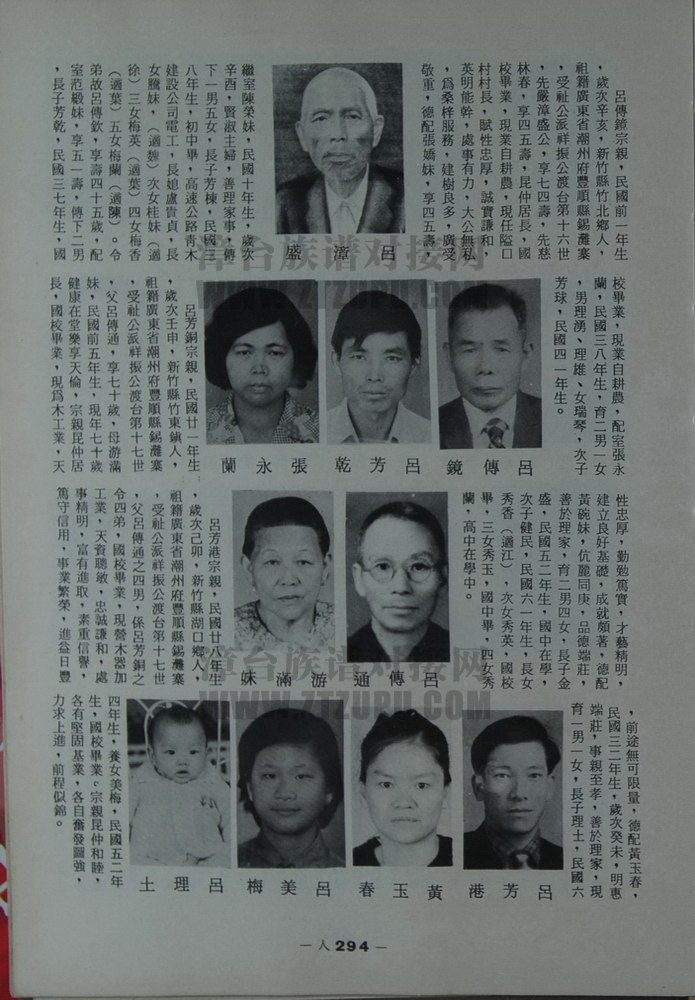 呂傳鏡宗親，民國前一年生
，歲次辛亥，新竹縣竹北鄉人，
祖籍廣東省潮州府豐順縣錫灘寨
，受祉公派祥振公渡台第十六世
，先嚴漳盛公，享七四壽，先慈
林春，享四五壽，昆仲居長，國
校畢業，現業自耕農，現任隘口
村村長，賦性忠厚，誠實謙和，
英明能幹，處事有力，大公無私
，爲桑梓服務，建樹良多，廣受
敬重，德配張嬌妹，享四五壽，
呂漳盛
繼室陳榮妹，民國十年生，歲次
辛酉，賢淑主婦，善理家事，傳
下一男五女，長子芳棟，民國三
八年生，初中畢，高速公路青木
建設公司電工，長媳盧貴貞，長
女騰妹，（適魏）次女桂妹（適
徐）三女梅英（適葉）四女梅香
（適葉）五女梅蘭（適陳）。令
弟故呂傳欽，享壽四十五歲，配
室范緞妹，享五一壽，傳下二男
，長子芳乾，民國三七年生，國
校畢業，現業自耕農，配室張永
蘭，民國三八年生，育二男一女
，男理湧、理雄、女瑞琴，次子
芳球，民國四一年生。
呂傳鏡
呂芳乾
張永蘭
呂芳銅宗親，民國廿一年生
，歲次壬申，新竹縣竹東鎮人，
祖籍廣東省潮州府豐順縣錫灘寨
，受祉公派祥振公渡台第十七世
，父呂傳通，享七十歲，母游滿
妹，民國前五年生，現年七十歲
健康在堂樂享天倫，宗親昆仲居
長，國校畢業，現爲木工業，天
性忠厚，勤勉篤實，才藝精明，
建立良好基礎，成就頗著，德配
黃碗妹，伉麗同庚，品德端莊，
善於理家，育二男四女，長子金
盛，民國五二年生，國中在學，
次子健民，民國六一年生，長女
秀香（適江），次女秀英，國校
畢，三女秀玉，國中畢，四女秀
蘭，高中在學中。
呂傳通
游滿妹
呂芳港宗親，民國廿八年生
，歲次己卯，新竹縣湖口鄉人，
祖籍廣東省潮州府豐順縣錫灘寨
，受祉公派祥振公渡台第十七世
，父呂傳通之四男，係呂芳銅之
令四弟，國校畢業，現營木器加
工業，天資聰敏，忠誠謙和，處
事精明，富有進取，素重信譽，
篤守信用，事業繁榮，進益日豐
，前途無可限量，德配黃玉春，
民國三二年生，歲次癸未，明惠
端莊，事親至孝，善於理家，現
育一男一女，長子理士，民國六
呂芳港
黃玉春
呂美梅
呂理士
四年生，養女美梅，民國五二年
生，國校畢業。宗親昆仲和睦，
各有堅固基業，各自奮發圖強，
力求上進，前程似錦。
— 人 294 —
漳台族谱对接网
WWW.ZTZUPU.COM
漳台族谱对接网
WWW.ZTZUPU.COM